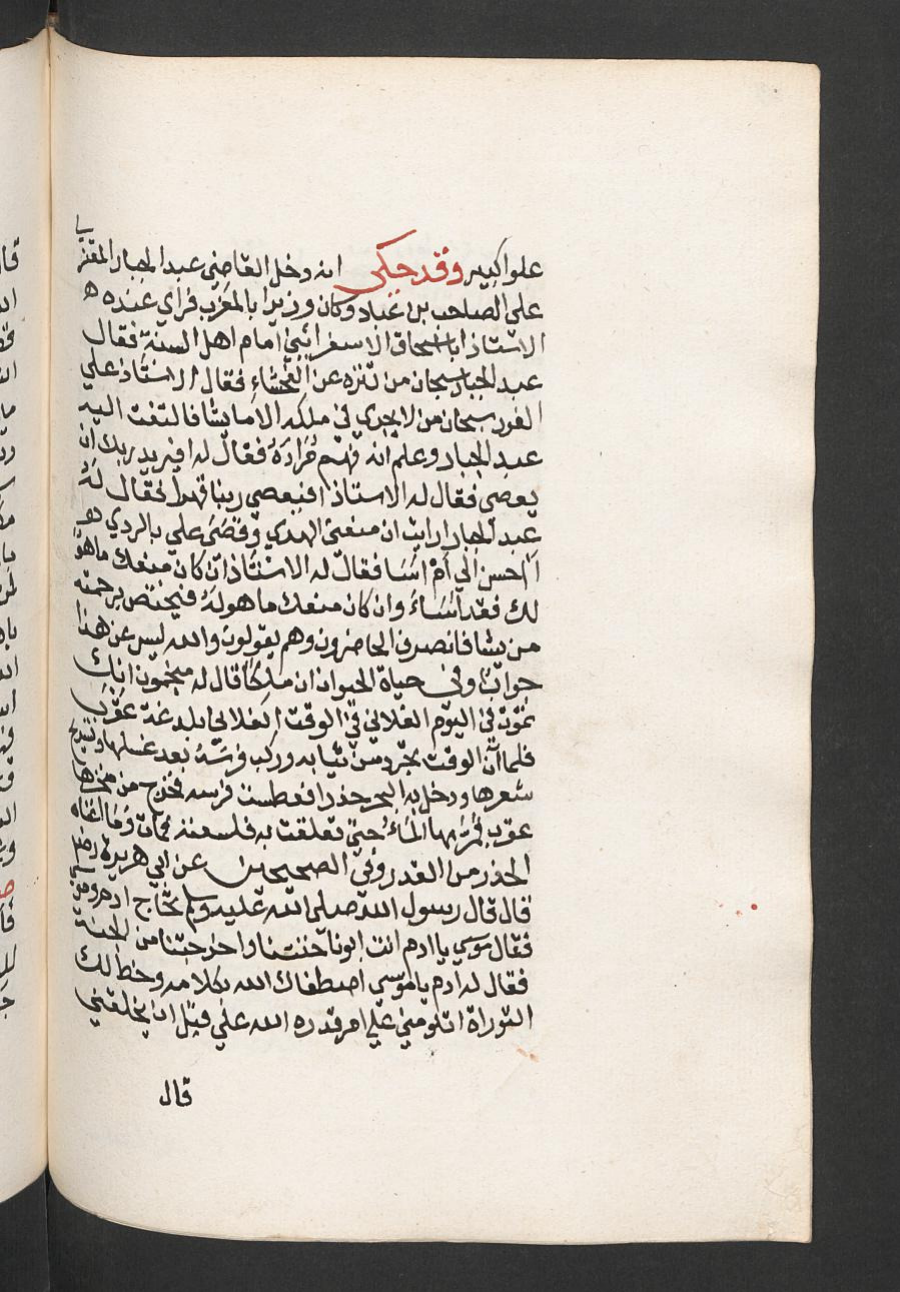 علوا كبير وقد حكى انه دخل القاضي عبد الجبار المعتزلي
على الصاحب بن عباد وكان وزيرا بالمغرب فراي عنده
الاستاذ ابا اسحاق الاسفرائني امام اهل السنة فقال
عبد الجبار سبحان من تنزه عن الفحشاء فقال الاستاذ علي
الفور سبحان من لا يجري في ملكه الا ما يشا فالتفت اليه
عبد الجبار وعلم انه فهم مُرادَهُ فقال له افيريد ربك ان
يعصى فقال له الاستاذ افيعصي ربنا قهرا فقال له
عبد الجبار ارايت ان منعني الهدي وقضى علي بالردي
احسن الي أم اسَا فقال له الاستاذ ان كان منعك ما هو
لك فقد اسَاءَ وان كان منعك ما هو لهُ فيختص برحمته
من يشا فانصرف الحاضرون وهم يقولون والله ليس عن هذا
جوابٌ وفي حياة الحيوان ان ملكا قال له منجمون انك
تموت في اليوم الفلاني في الوقت الفلاني بلدغة عقرب
فلما آن الوقت تجرد من ثيابه وركب فرسهُ بعد غسلها
شعرها ودخل به البحر حذرا فعطست فرسه فخرج من منخرها
عقرب الماء حتي تعلقت به فلسعته فمات وما اغناه
الحذر من القدر وفي الصحيحين عن ابي هريرة رضي
قال قال رسول الله صلى الله عليه وسلم تحاج ادم وموسي
فقال موسي يا ادم انت ابونا خنتنا واخرجتنا من الجنة
فقال له ادم يا موسي اصطفاك الله بكلامه وخط لك
التوراة اتلومني علي امر قدره الله علي قبل ان يخلقني
قال